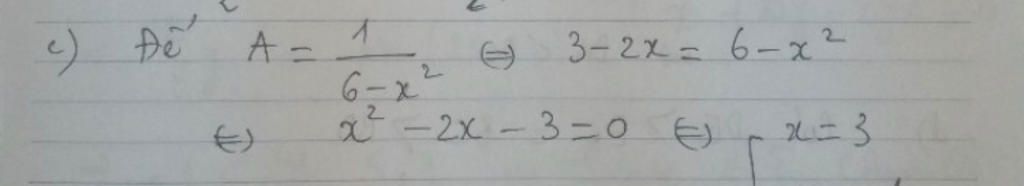 c) Để A = 1/(6-x²) ⇔ 3-2x = 6-x²
⇔ x²-2x-3=0 ⇔ [ x=3